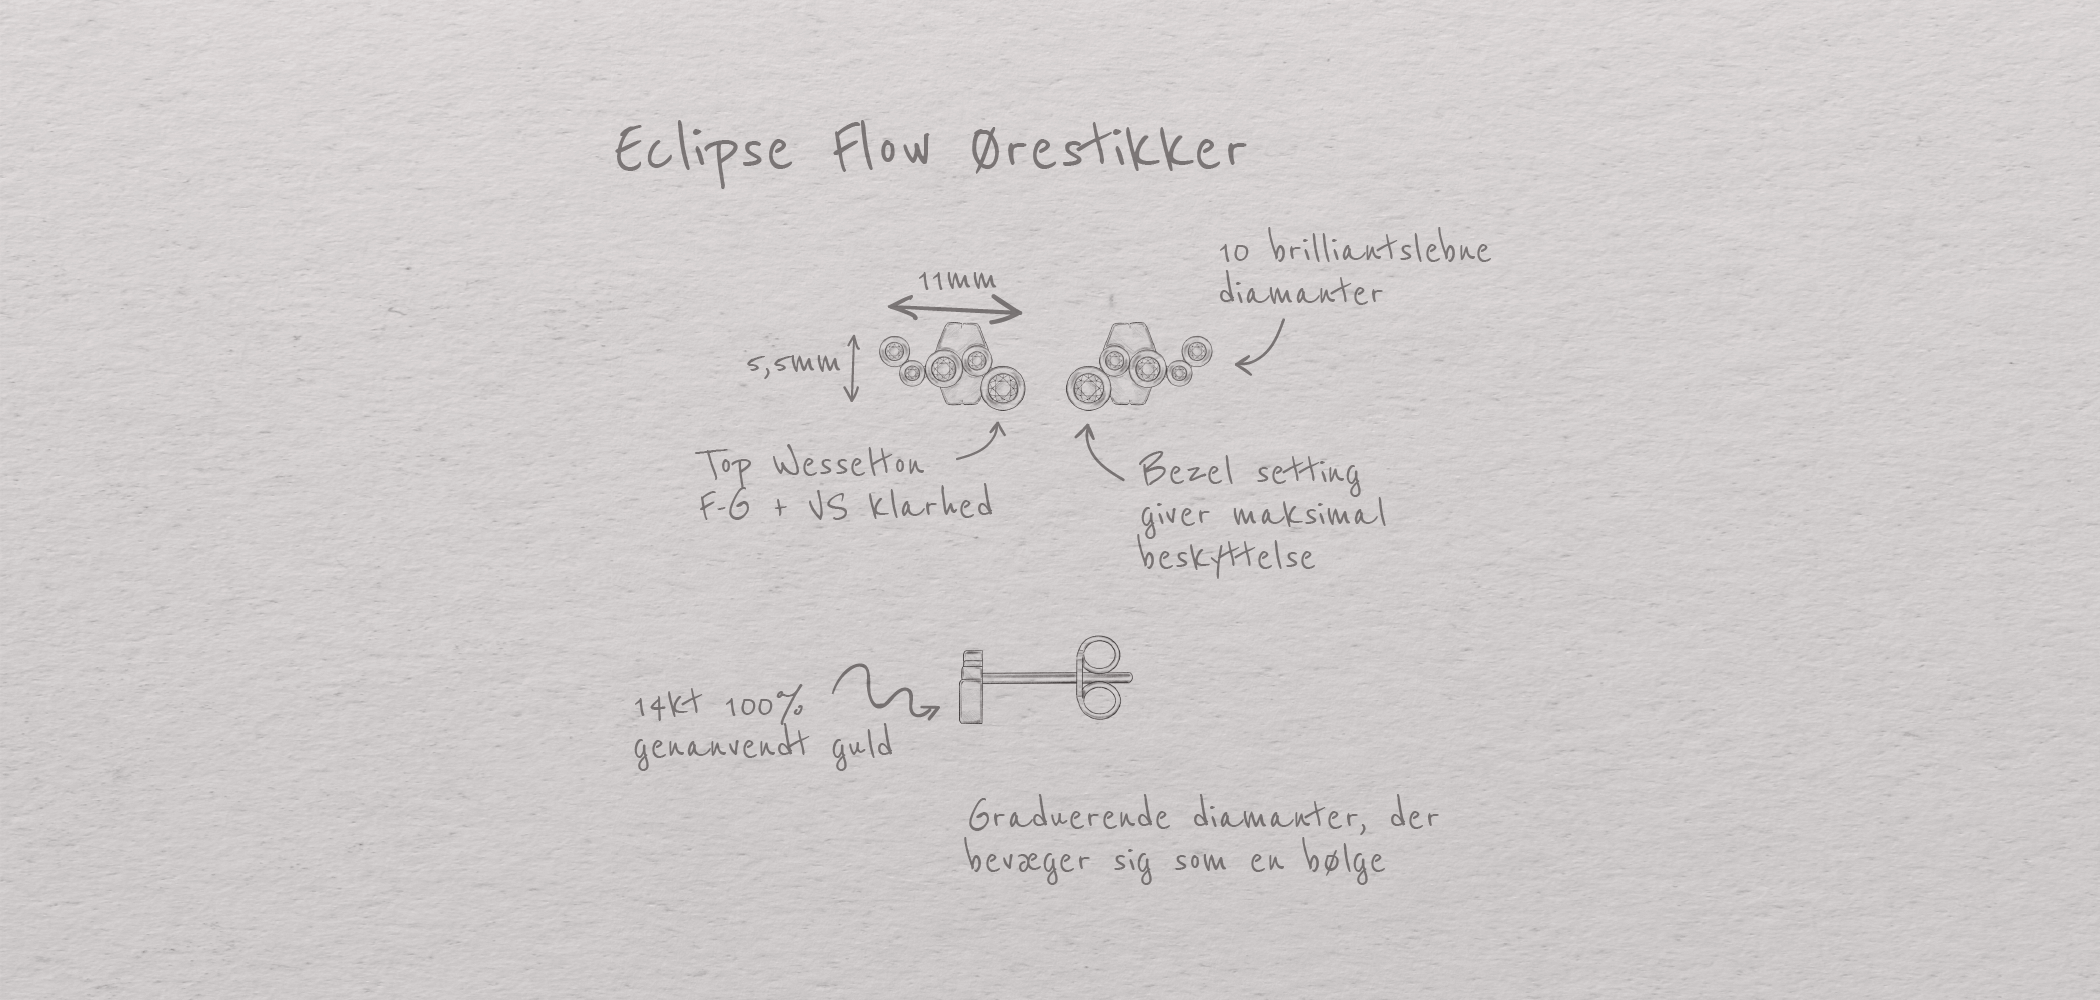 Eclipse Flow Ørestikker
10 brilliantslebne
diamanter
11mm
5,5mm
Top Wesselton
F-G + VS klarhed
Bezel setting
giver maksimal
beskyttelse
14kt 100%
genanvendt guld
Graduerende diamanter, der
bevæger sig som en bølge